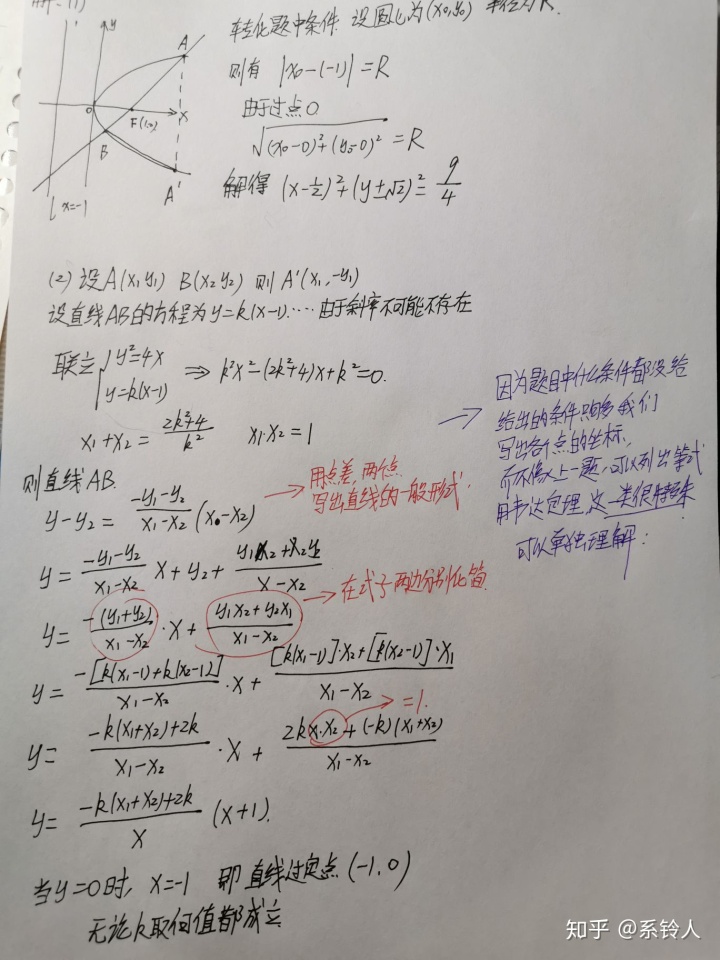 解 (1)
y
A
O
F(1,0)
x
B
A'
l
x=-1
转化题中条件 设圆心为(x0,y0) 半径为R.
则有 |x0-(-1)|=R
由于过点O
√(x0-0)²+(y0-0)² =R
解得 (x-1/2)²+(y±√2)²=9/4
(2) 设A(x1 y1) B(x2 y2) 则A'(x1,-y1)
设直线AB的方程为y=k(x-1).…由于斜率不可能不存在
联立{y²=4x
y=k(x-1) ⇒ k²x²-(2k²+4)x+k²=0.
x1+x2=(2k²+4)/k² x1·x2=1
→ 因为题目中什么条件都没给
给出的条件只够我们
写出各个点的坐标,
而不像上一题,可以列出等式
用韦达定理,这一类很特殊
可以单独理解:
则直线AB.
y-y2=(-y1-y2)/(x1-x2) (x0-x2)
→ 用点差,两点
写出直线的一般形式.
y=(-y1-y2)/(x1-x2) x+y2+(y1x2+x2y2)/(x-x2)
y=(-(y1+y2))/(x1-x2)·x+(y1x2+y2x1)/(x1-x2)
→ 在式子两边分别化简
y=(-[k(x1-1)+k(x2-1)])/(x1-x2)·x+([k(x1-1)]·x2+[k(x2-1)]·x1)/(x1-x2)
y=(-k(x1+x2)+2k)/(x1-x2)·x+(2kx1·x2+(-k)(x1+x2))/(x1-x2)
→ =1.
y=(-k(x1+x2)+2k)/x (x+1).
当y=0时, x=-1 即直线过定点(-1,0)
无论k取何值都成立
知乎 @系铃人